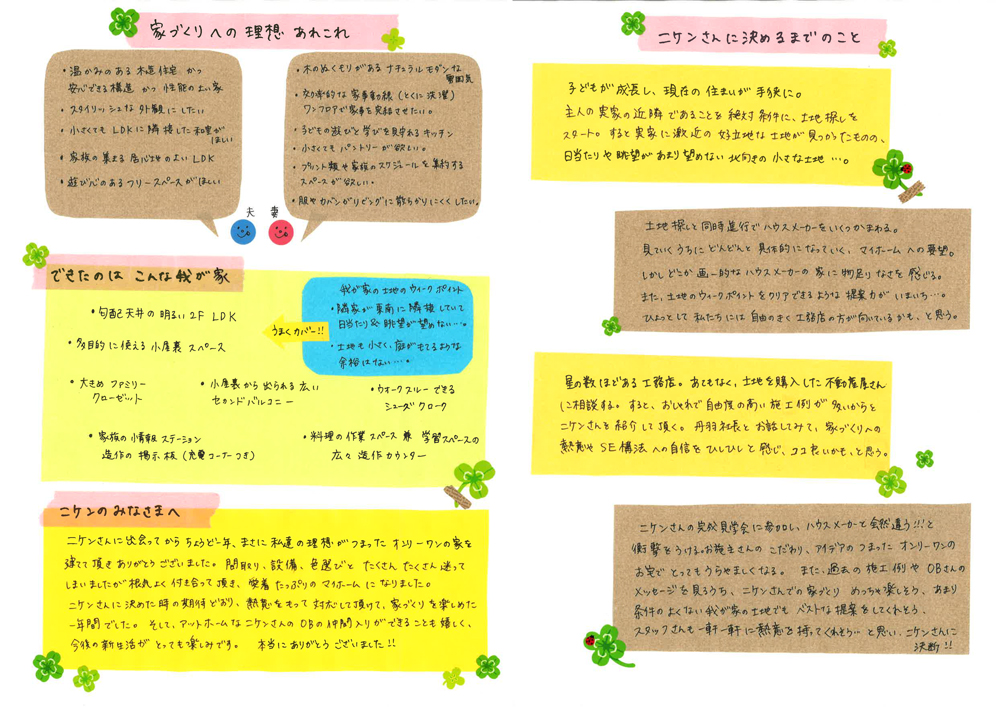 家づくりへの理想 あれこれ
・温かみのある木造住宅 かつ
安心できる構造 かつ 性能の良い家
・スタイリッシュな外観にしたい
・小さくても LDKに隣接した和室が
ほしい
・家族の集まる居心地のよいLDK
・遊び心のあるフリースペースがほしい
・木のぬくもりがあるナチュラルモダンな
雰囲気
・効率的な家事動線(とくに洗濯)
ワンフロアで家事を完結させたい。
・子どもの遊びと学びを見守れるキッチン
・小さくてもパントリーが欲しい。
・プリント類や家族のスケジュールを集約する
スペースが欲しい。
・服やカバンがリビングに散らかりにくくしたい。
夫 妻
できたのは こんな我が家
・勾配天井の明るい2F LDK
・多目的に使える小屋裏スペース
・大きめファミリー
クローゼット
・小屋裏から出られる広い
セカンドバルコニー
・ウォークスルーできる
シューズクローク
・家族の情報ステーション
造作の掲示板(充電コーナーつき)
・料理の作業スペース兼 学習スペースの
広々造作カウンター
我が家の土地のウィークポイント
・隣家が東南に隣接していて
日当たり&眺望が望めない…。
・土地も小さく、庭がもてるような
余裕はない…。
うまくカバー!!
ニケンのみなさまへ
ニケンさんに出会ってからちょうど一年、まさに私達の理想がつまったオンリーワンの家を
建てて頂きありがとうございました。間取り、設備、色選びと たくさんたくさん迷って
しまいましたが根気よく付き合って頂き、愛着たっぷりのマイホームになりました。
ニケンさんに決めた時の期待どおり、熱意をもって対応して頂けて、家づくりを楽しめた
一年間でした。そして、アットホームなニケンさんのOBの仲間入りができることも嬉しく、
今後の新生活がとっても楽しみです。 本当にありがとうございました!!
ニケンさんに決めるまでのこと
子どもが成長し、現在の住まいが手狭に。
主人の実家の近隣であることを絶対条件に、土地探しを
スタート。すると実家に激近の好立地な土地が見つかったものの、
日当たりや眺望があまり望めない北向きの小さな土地…。
土地探しと同時進行でハウスメーカーをいくつかまわる。
見ていくうちにどんどんと具体的になっていく、マイホームへの要望。
しかしどこか画一的なハウスメーカーの家に物足りなさを感じる。
また、土地のウィークポイントをクリアできるような提案力がいまいち…。
ひょっとして私たちには自由のきく工務店の方が向いているかも、と思う。
星の数ほどある工務店。あてもなく、土地を購入した不動産屋さん
に相談する。すると、おしゃれで自由度の高い施工例が多いからと
ニケンさんを紹介して頂く。丹羽社長とお話してみて、家づくりへの
熱意やSE構法への自信をひしひしと感じ、ココ良いかも、と思う。
ニケンさんの完成見学会に参加し、ハウスメーカーと全然違う!!!と
衝撃をうける。お施主さんのこだわり、アイデアのつまったオンリーワンの
お宅でとってもうらやましくなる。また、過去の施工例やOBさんの
メッセージを見るうち、ニケンさんでの家づくり めっちゃ楽しそう、あまり
条件のよくない我が家の土地でも ベストな提案をしてくれそう、
スタッフさんも一軒一軒に熱意を持ってくれそう… と思い、ニケンさんに
決断!!